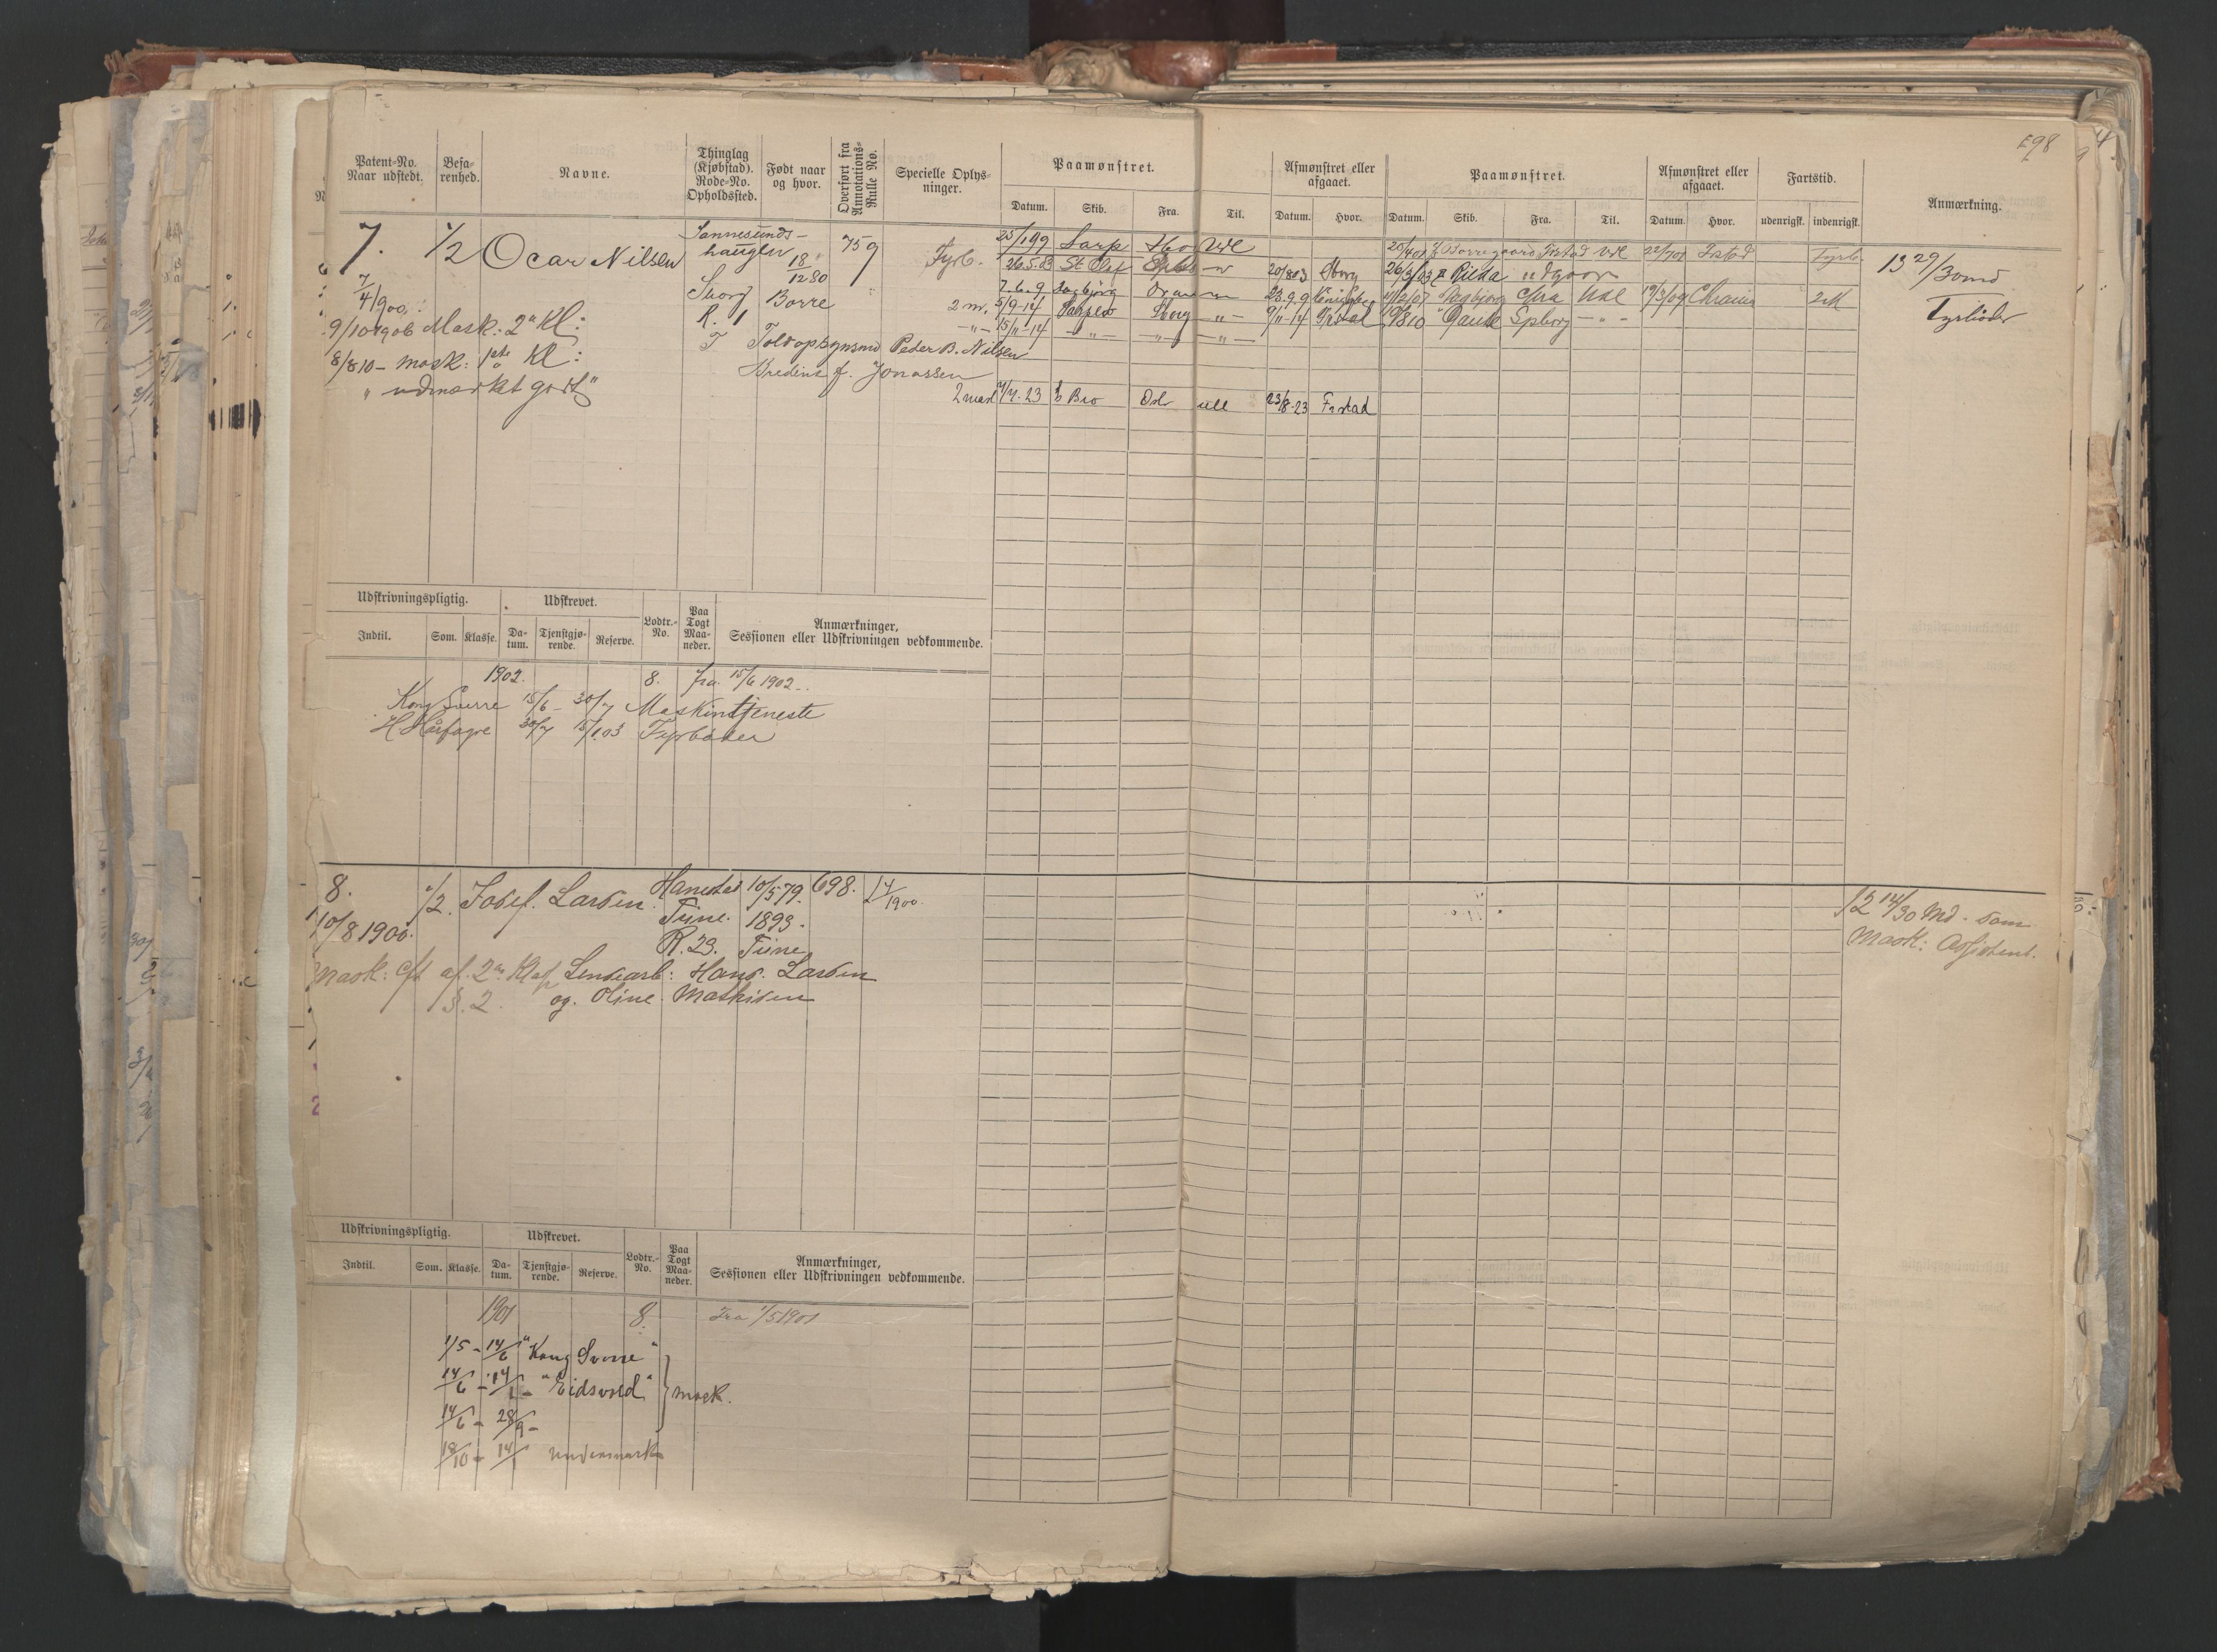 E98
Patent-No. Naar udstedt. Befarenhed. Navne. Thinglag (Kjøbstad). Rode-No. Opholdssted. Født naar og hvor. Overført fra Annotations-Rulle No. Specielle Oplysninger. Paamønstret. Afmønstret eller afgaaet. Paamønstret. Afmønstret eller afgaaet. Fartstid. Anmærkning.
Datum. Skib. Fra. Til. Datum. Hvor. Datum. Skib. Fra. Til. Datum. Hvor. udenrigsk. indenrigsk.
7. 1/2 Ocar Nilsen Sannesunds- 759 Fyrb. 25/1 99 Sarp Sbo Udl Borregaard Frstad Udl 22/7 01 Frstad Fyrb. 13 29/30 md
7/4 1900. haugen 18/12 80 26.5.03 St Olaf 20/8 03 Sborg 26/3/03 Fyrbøder
Sborg Borre 7.6.9 Dagbjørg 23.9.9 Dagbjørg Chra Udl 19/3/09 Chrania 2M
9/10 1906 Mask. 2n Kl: R. 1 2 m. 5/9-14 Sarpen Sborg -"- 9/11-14 Gauk Spborg -"-
-"- 15/11-14 -"- -"- -"-
8/8 10 - mask: 1ste Kl: F Toldopsynsmd Peder B. Nilsen
"udmærket godt" Bredine f. Jonassen
2 mask 4/7-23 Bro Oslo utl 23/8-23 Fr.stad
Udskrivningspligtig. Udskrevet. Lodtr.-No. Paa Togt Maaneder. Anmærkninger, Sessionen eller Udskrivningen vedkommende.
Indtil. Som. Klasse. Datum. Tjenstgjørende. Reserve.
1902. 8. fra 15/6 1902.
Kong Sverre 15/6 - 30/7 Maskintjeneste
H Hårfagre 30/7 15/1 03 Fyrbøder
8. 2/2. Josef. Larsen. Hanestad 10/5 79. 698. 17/ 1900. 12 14/30 Md. som
10/8 1900. Tune. 1893. Mask: Assistent.
R. 23. Tune
Mask: Cft af. 2n Kl af Lensearb: Hans. Larsen
§. 2. og. Oline. Mathisen
Udskrivningspligtig. Udskrevet. Lodtr.-No. Paa Togt Maaneder. Anmærkninger, Sessionen eller Udskrivningen vedkommende.
Indtil. Som. Klasse. Datum. Tjenstgjørende. Reserve.
1901 8. Fra 1/5 1901
1/5 - 14/6 "Kong Sverre"
14/6 - 14/1 - "Eidsvold" } mask.
14/6 - 28/9 -
18/10 - 14/1